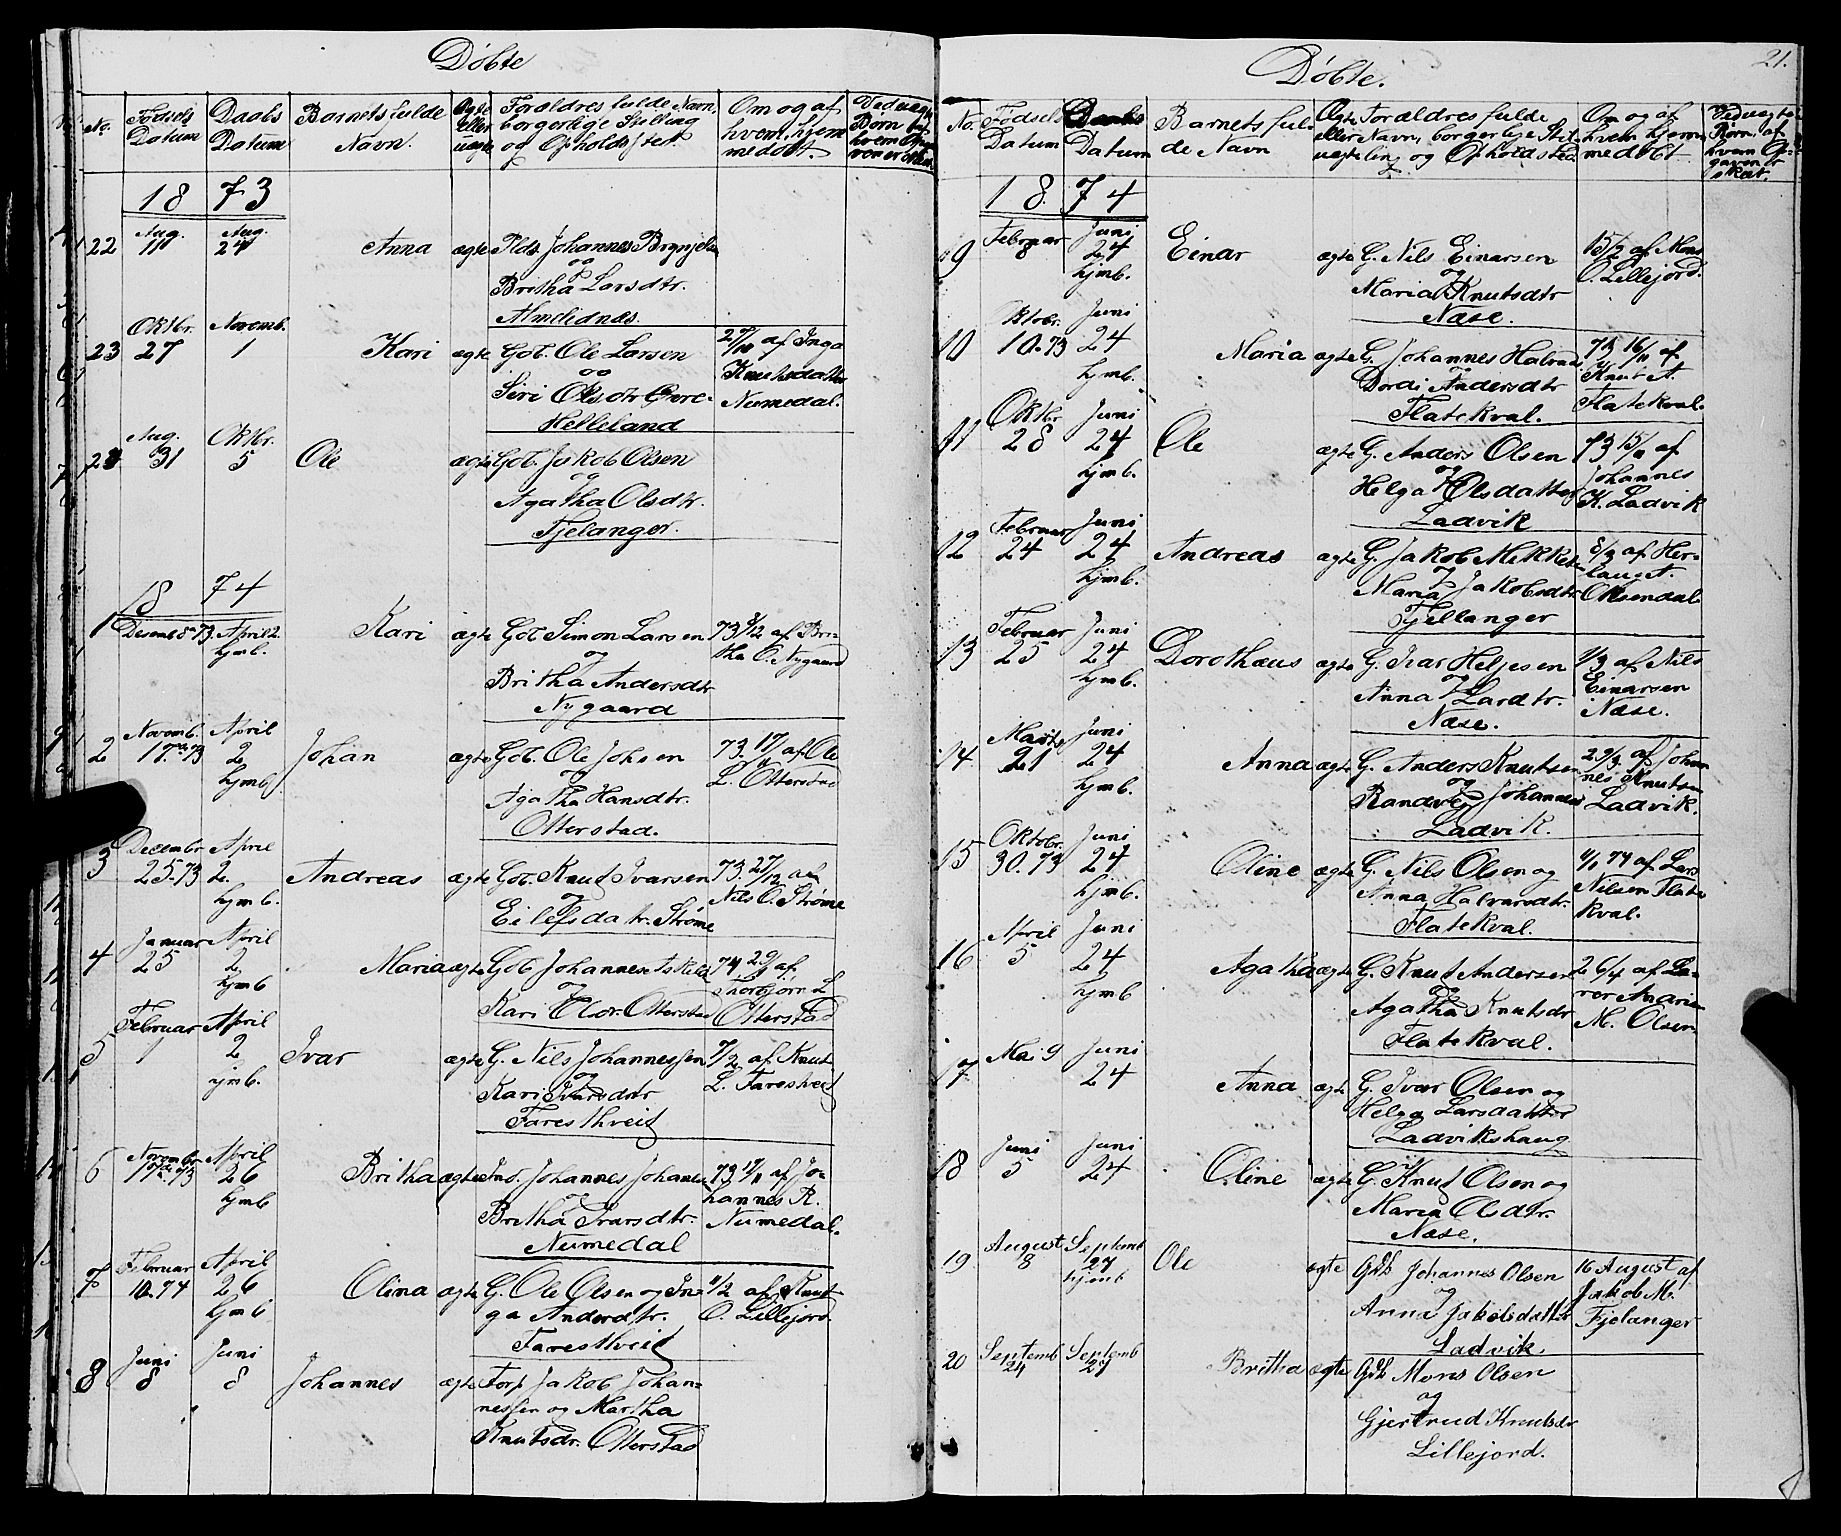 Døbte
No.
Fødsels Datum
Daabs Datum
Barnets fulde Navn.
Ægte eller uægte
Forældres fulde Navn, borgerlige Stilling og Opholdssted
Om og af hvem hjemmedøbt.
18 73
22 Aug. 11 Aug. 24 Anna ægte Plds. Johannes Brynjels
og
Britha Larsdtr.
Almelidnæs.
23 Oktbr. 27 Novemb. 1 Kari ægte Gbr. Ole Larsen 29/10 af Inga
og Knutsdatter
Siri Olsdtr Øvre- Numedal.
Helleland
24 Aug. 31 Oktbr. 5 Ole ægte Gbr. Jakob Olsen
og
Agatha Olsdtr.
Fjelanger.
18 74
1 Desemb 5-73 April 2. hjmb. Kari ægte Gbr. Simon Larsen 73 9/12 af Bri-
og tha O. Nygaard
Britha Andersdtr
Nygaard
2 Novemb. 17-73 April 2 hjmb Johan ægte Gbr. Ole Johsen 73. 17/11 af Ole
og L. Otterstad
Agatha Hansdtr.
Otterstad.
3 Decembr 25-73 April 2. hjmb. Andreas ægte Gbr. Knut Ivarsen 73. 27/12 af
og Nils O. Strøme
Eilefsdatr. Strøme
4 Januar 25 April 2 hjmb Maria ægte Gbr. Johannes Askild 74 29/1 af
og Thorbjørn L
Kari Oldr. Otterstad Otterstad
5 Februar 1 April 2 hjmb. Ivar ægte G. Nils Johannessen 7/2 af Knut
og L. Farestveit
Kari Ivarsdtr
Faresthveit
6 Novembr 17-73 April 26 hjmb Britha ægte Ind. Johannes Johanes 73 17/11 af Jo-
og hannes R.
Britha Ivarsdtr. Numedal.
Numedal
7 Februar 10.74 April 26 hjmb Olina ægte G. Ole Olsen og In- /2 af Knut
ga Anderdtr. O. Lillejord
Faresthveit
8 Juni 8 Juni 8 Johannes ægte Torp Jakob Johan-
nessen og Martha
Knutsdr. Otterstad
Døbte.
21.
No.
Fødsels Datum
Daabs Datum
Barnets fulde Navn
Ægte eller uægte
Forældres fulde Navn, borgerlige Stilling og Opholdsted
Om og af hvem hjemmedøbt
18 74
9 Februar 8 Juni 24 hjmb. Einar ægte G. Nils Einarsen 15/2 af Mons
og O. Lillejord.
Maria Knutsdtr
Næse.
10 Oktobr. 10.73 Juni 24 hjmb. Maria ægte G. Johannes Halvar 73 16/11 af
og Knut A.
Dordi Andersdtr Flatekval.
Flatekval.
11 Oktbr. 28 Juni 24 hjmb. Ole ægte G. Anders Olsen 73 15/11 af
og Johannes
Helga Olsdatter K. Ladvik
Ladvik
12 Februar 24 Juni 24 hjmb. Andreas ægte G. Jakob Mikkels 8/3 af Her-
og laug A.
Maria Jakobsdtr Oksendal
Fjellanger
13 Februar 25 Juni 24 hjmb. Dorothæus ægte G. Ivar Heljesen 1/3 af Nils
og Einarsen
Anna Lardtr. Næse.
Næse.
14 Marts 21 Juni 24 hjmb. Anna ægte G. Anders Knutsen 29/3 af Johan
og nes Knutsen
Randve Johannes Ladvik.
Ladvik.
15 Oktobr. 30.73 Juni 24 hjmb. Oline ægte G. Nils Olsen og 4/1 74 af Lars
Anna Halvarsdtr. Nilsen Flate
Flatekval. kval.
16 April 5 Juni 24 hjmb Agatha ægte G. Knut Andersen 26/4 af Læ-
og rer Anarie
Agatha Knutsdr M. Olsen.
Flatekval.
17 Mai 9 Juni 24 Anna ægte G. Ivar Olsen og
Helga Larsdatter
Ladvikshaug
18 Juni 5 Juni 24 Oline ægte G. Knut Olsen og
Maria Olsdtr.
Næse.
19 August 8 Septemb 27 hjmb Ole ægte Gbr Johannes Olsen 16 August af
og Jakob M.
Anna Jakobsdatter Fjelanger
Ladvik
20 Septemb 24 Septemb 27 Britha ægte Gbr Mons Olsen
og
Gjertrud Knutsdr
Lillejord.